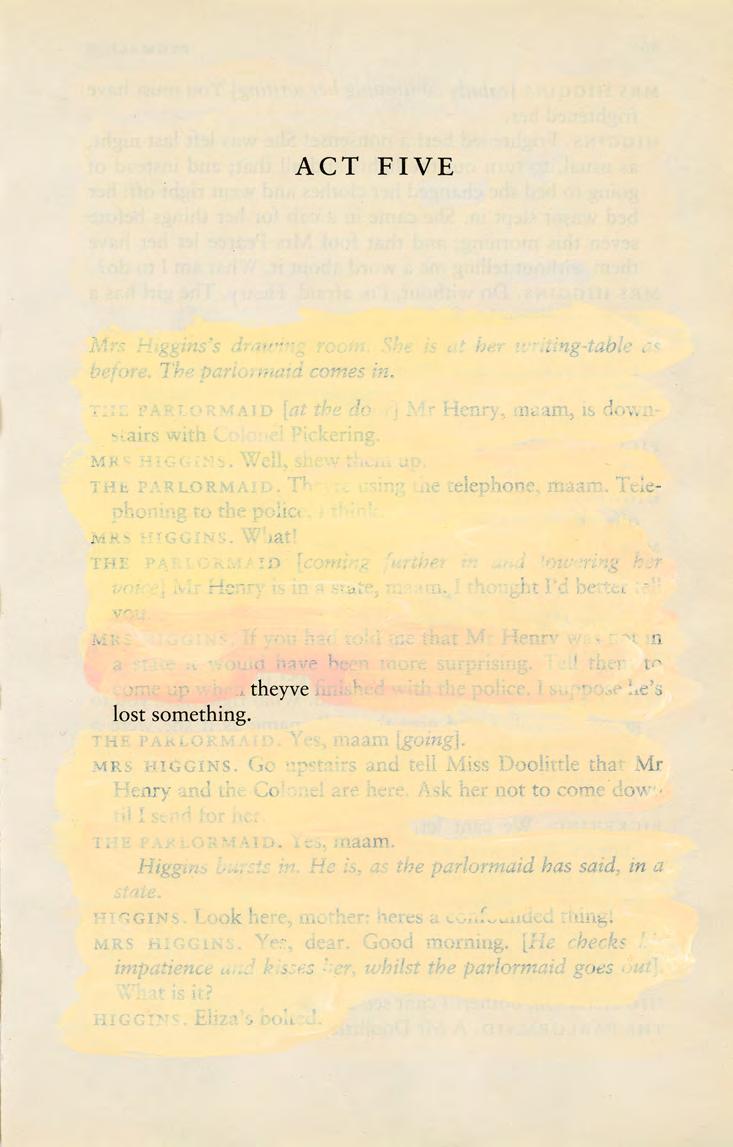 ACT FIVE
Mrs Higgins's drawing room. She is at her writing-table as
before. The parlormaid comes in.
THE PARLORMAID [at the door] Mr Henry, maam, is down-
stairs with Colonel Pickering.
MRS HIGGINS. Well, shew them up.
THE PARLORMAID. Theyre using the telephone, maam. Tele-
phoning to the police, I think.
MRS HIGGINS. What!
THE PARLORMAID [coming further in and lowering her
voice] Mr Henry is in a state, maam. I thought I'd better tell
you.
MRS HIGGINS. If you had told me that Mr Henry was not in
a state it would have been more surprising. Tell them to
come up when theyve finished with the police. I suppose he's
lost something.
THE PARLORMAID. Yes, maam [going].
MRS HIGGINS. Go upstairs and tell Miss Doolittle that Mr
Henry and the Colonel are here. Ask her not to come down
til I send for her.
THE PARLORMAID. Yes, maam.
Higgins bursts in. He is, as the parlormaid has said, in a
state.
HIGGINS. Look here, mother: heres a confounded thing!
MRS HIGGINS. Yes, dear. Good morning. [He checks his
impatience and kisses her, whilst the parlormaid goes out].
What is it?
HIGGINS. Eliza's bolted.